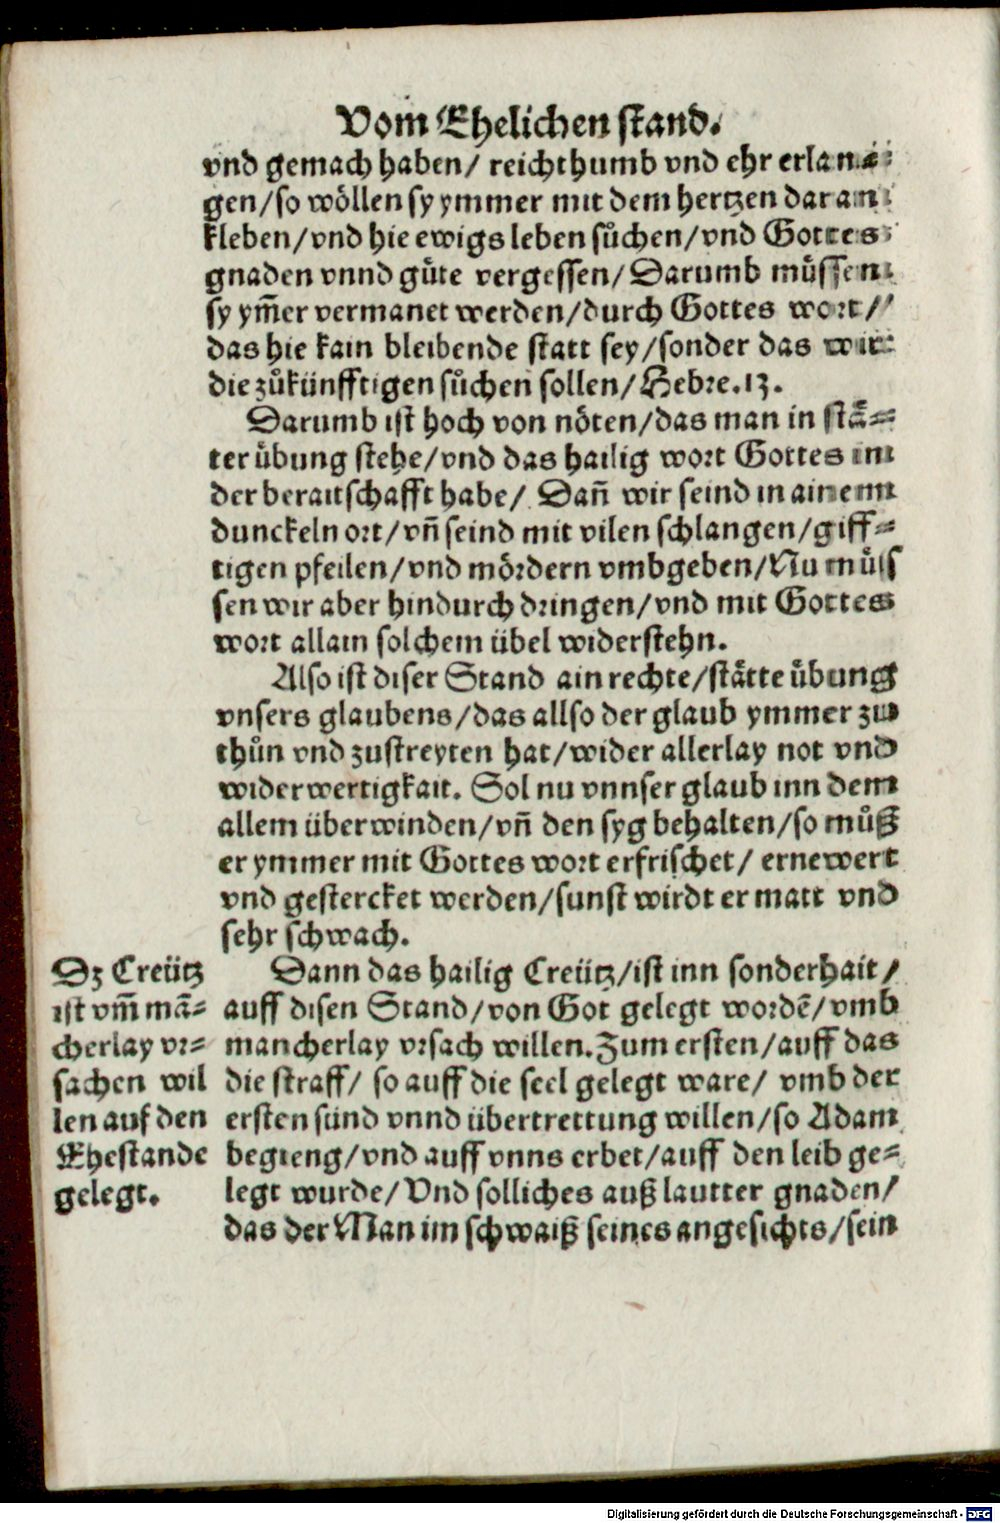 Vom Ehelichen stand.
vnd gemach haben/ reichthumb vnd ehr erlan⸗
gen/so wöllen sy ymmer mit dem hertzen daran
kleben/vnd hie ewigs leben sůchen/vnd Gottes
gnaden vnnd gůte vergessen/ Darumb můssen
sy ym̃er vermanet werden/durch Gottes wort/
das hie kain bleibende statt sey/sonder das wir
die zůkünfftigen sůchen sollen/Hebre.13.
Darumb ist hoch von nöten/das man in stä⸗
ter übung stehe/vnd das hailig wort Gottes in
der beraitschafft habe/ Dañ wir seind in ainem
dunckeln ort/vñ seind mit vilen schlangen/giff⸗
tigen pfeilen/vnd mördern vmbgeben/Nu můs
sen wir aber hindurch dringen/vnd mit Gottes
wort allain solchem übel widerstehn.
Also ist diser Stand ain rechte/stätte übung
vnsers glaubens/das allso der glaub ymmer zu
thůn vnd zustreyten hat/wider allerlay not vnd
widerwertigkait. Sol nu vnnser glaub inn dem
allem überwinden/vñ den syg behalten/so můß
er ymmer mit Gottes wort erfrischet/ ernewert
vnd gestercket werden/sunst wirdt er matt vnd
sehr schwach.
Dann das hailig Creütz/ist inn sonderhait/
auff disen Stand/von Got gelegt wordẽ/vmb
mancherlay vrsach willen.Zum ersten/auff das
die straff/ so auff die seel gelegt ware/ vmb der
ersten sünd vnnd übertrettung willen/so Adam
begieng/vnd auff vnns erbet/auff den leib ge⸗
legt wurde/Vnd solliches auß lautter gnaden/
das der Man im schwaiß seines angesichts/sein
Dz Creütz
ist vm̃ mã⸗
cherlay vr⸗
sachen wil
len auf den
Ehestande
gelegt.
Digitalisierung gefördert durch die Deutsche Forschungsgemeinschaft - DFG